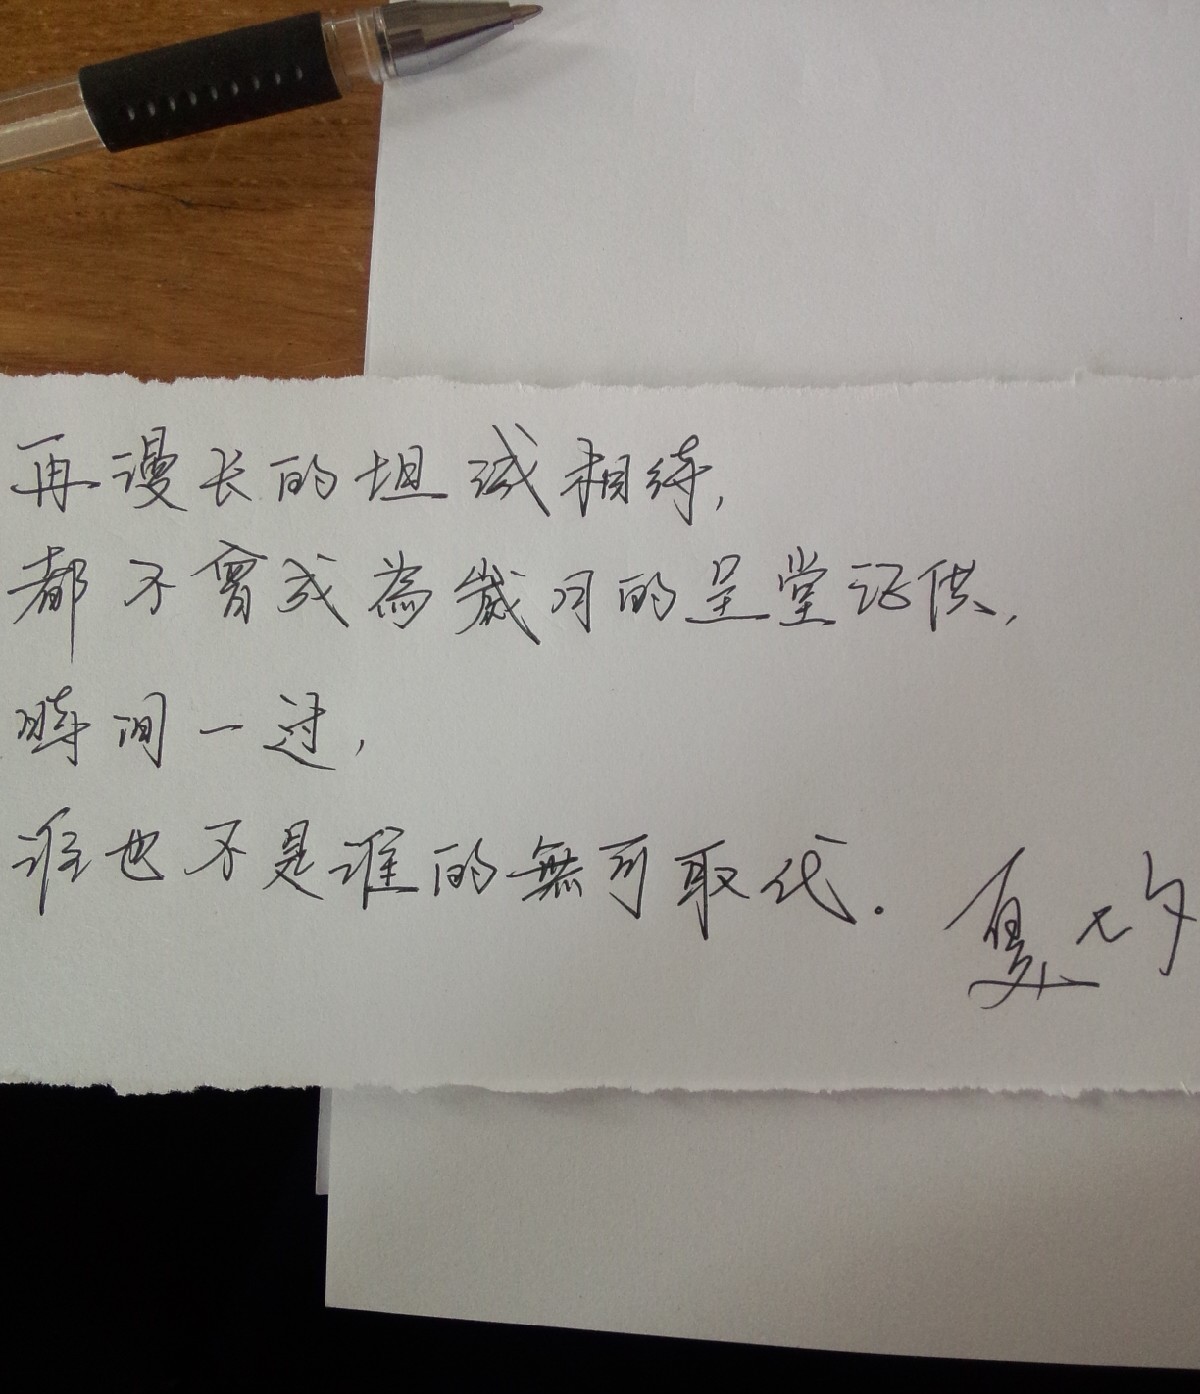 再漫长的坦诚相待,
都不曾成為歲月的呈堂证供,
時间一过,
谁也不是谁的無可取代.
夏七夕